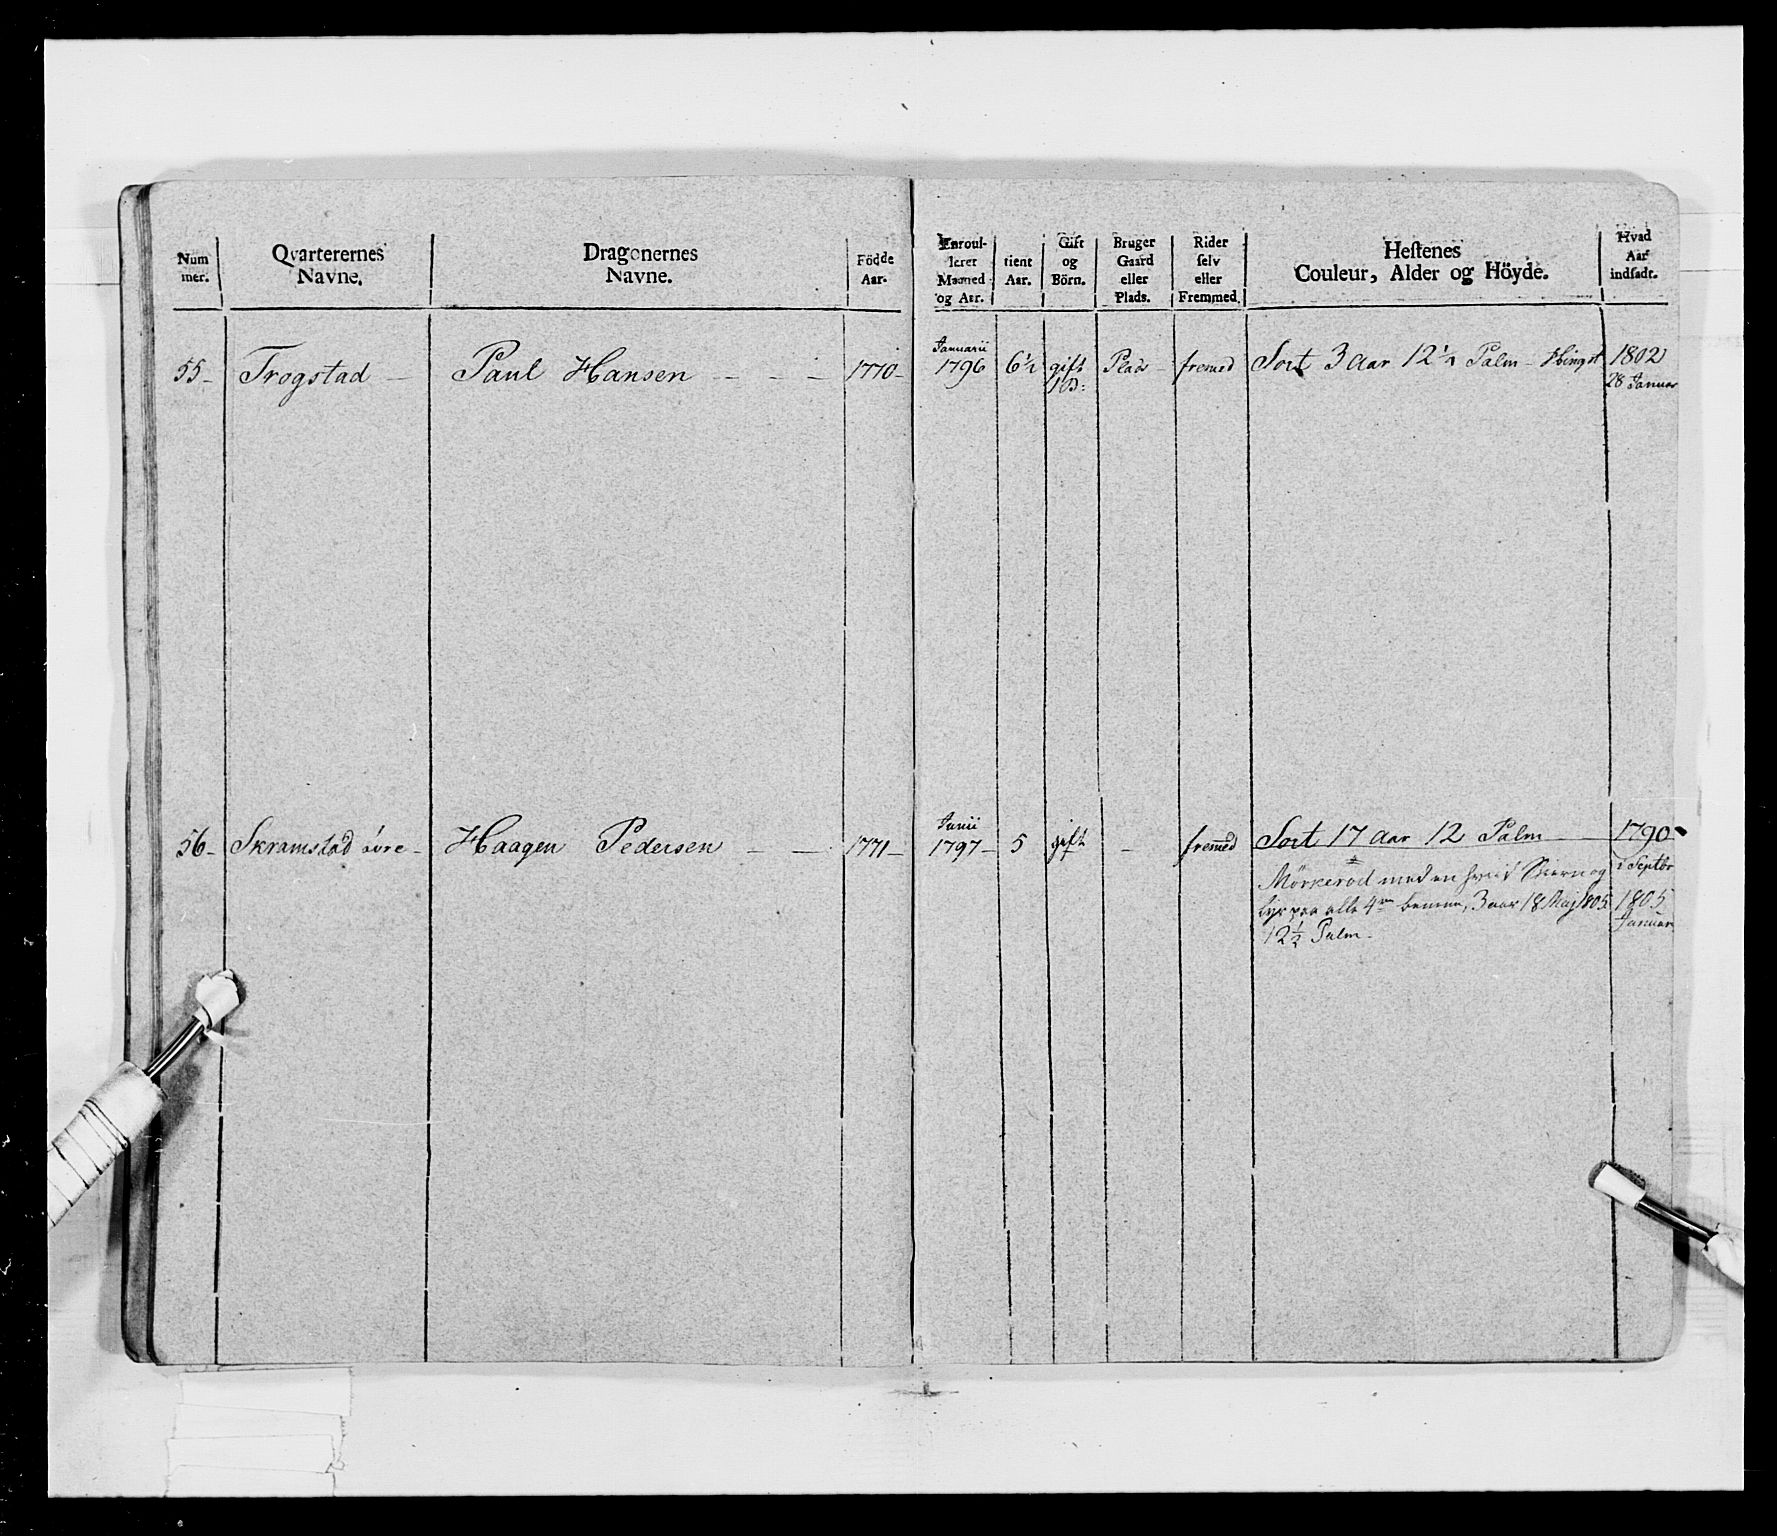 Num mer.
Qvarterernes Navne.
Dragonernes Navne.
Födde Aar.
Enroul- lerer Maaned og Aar.
tient Aar.
Gift og Börn.
Bruger Gaard eller Plads.
Rider selv eller Fremmed.
Hestenes Couleur, Alder og Höyde.
Hvad Aar indsadt.
55 - Trogstad - Paul Hansen - - - 1770 - Januarii 1796 6½ gift 1 B: Plads fremed Sort 3 aar 12½ Palm - Hingst 1802 28 Januar
56 - Skramstad óvre - Haagen Pedersen - - 1771 - Junii 1797 - 5 gift - fremed Sort 17 aar 12 Palm - 1790 -
Mörkerod med en hviid Stiern og Septbr
paa alle 4re benene, 3 aar 18 Maj 1805 1805
12½ Palm - Januar